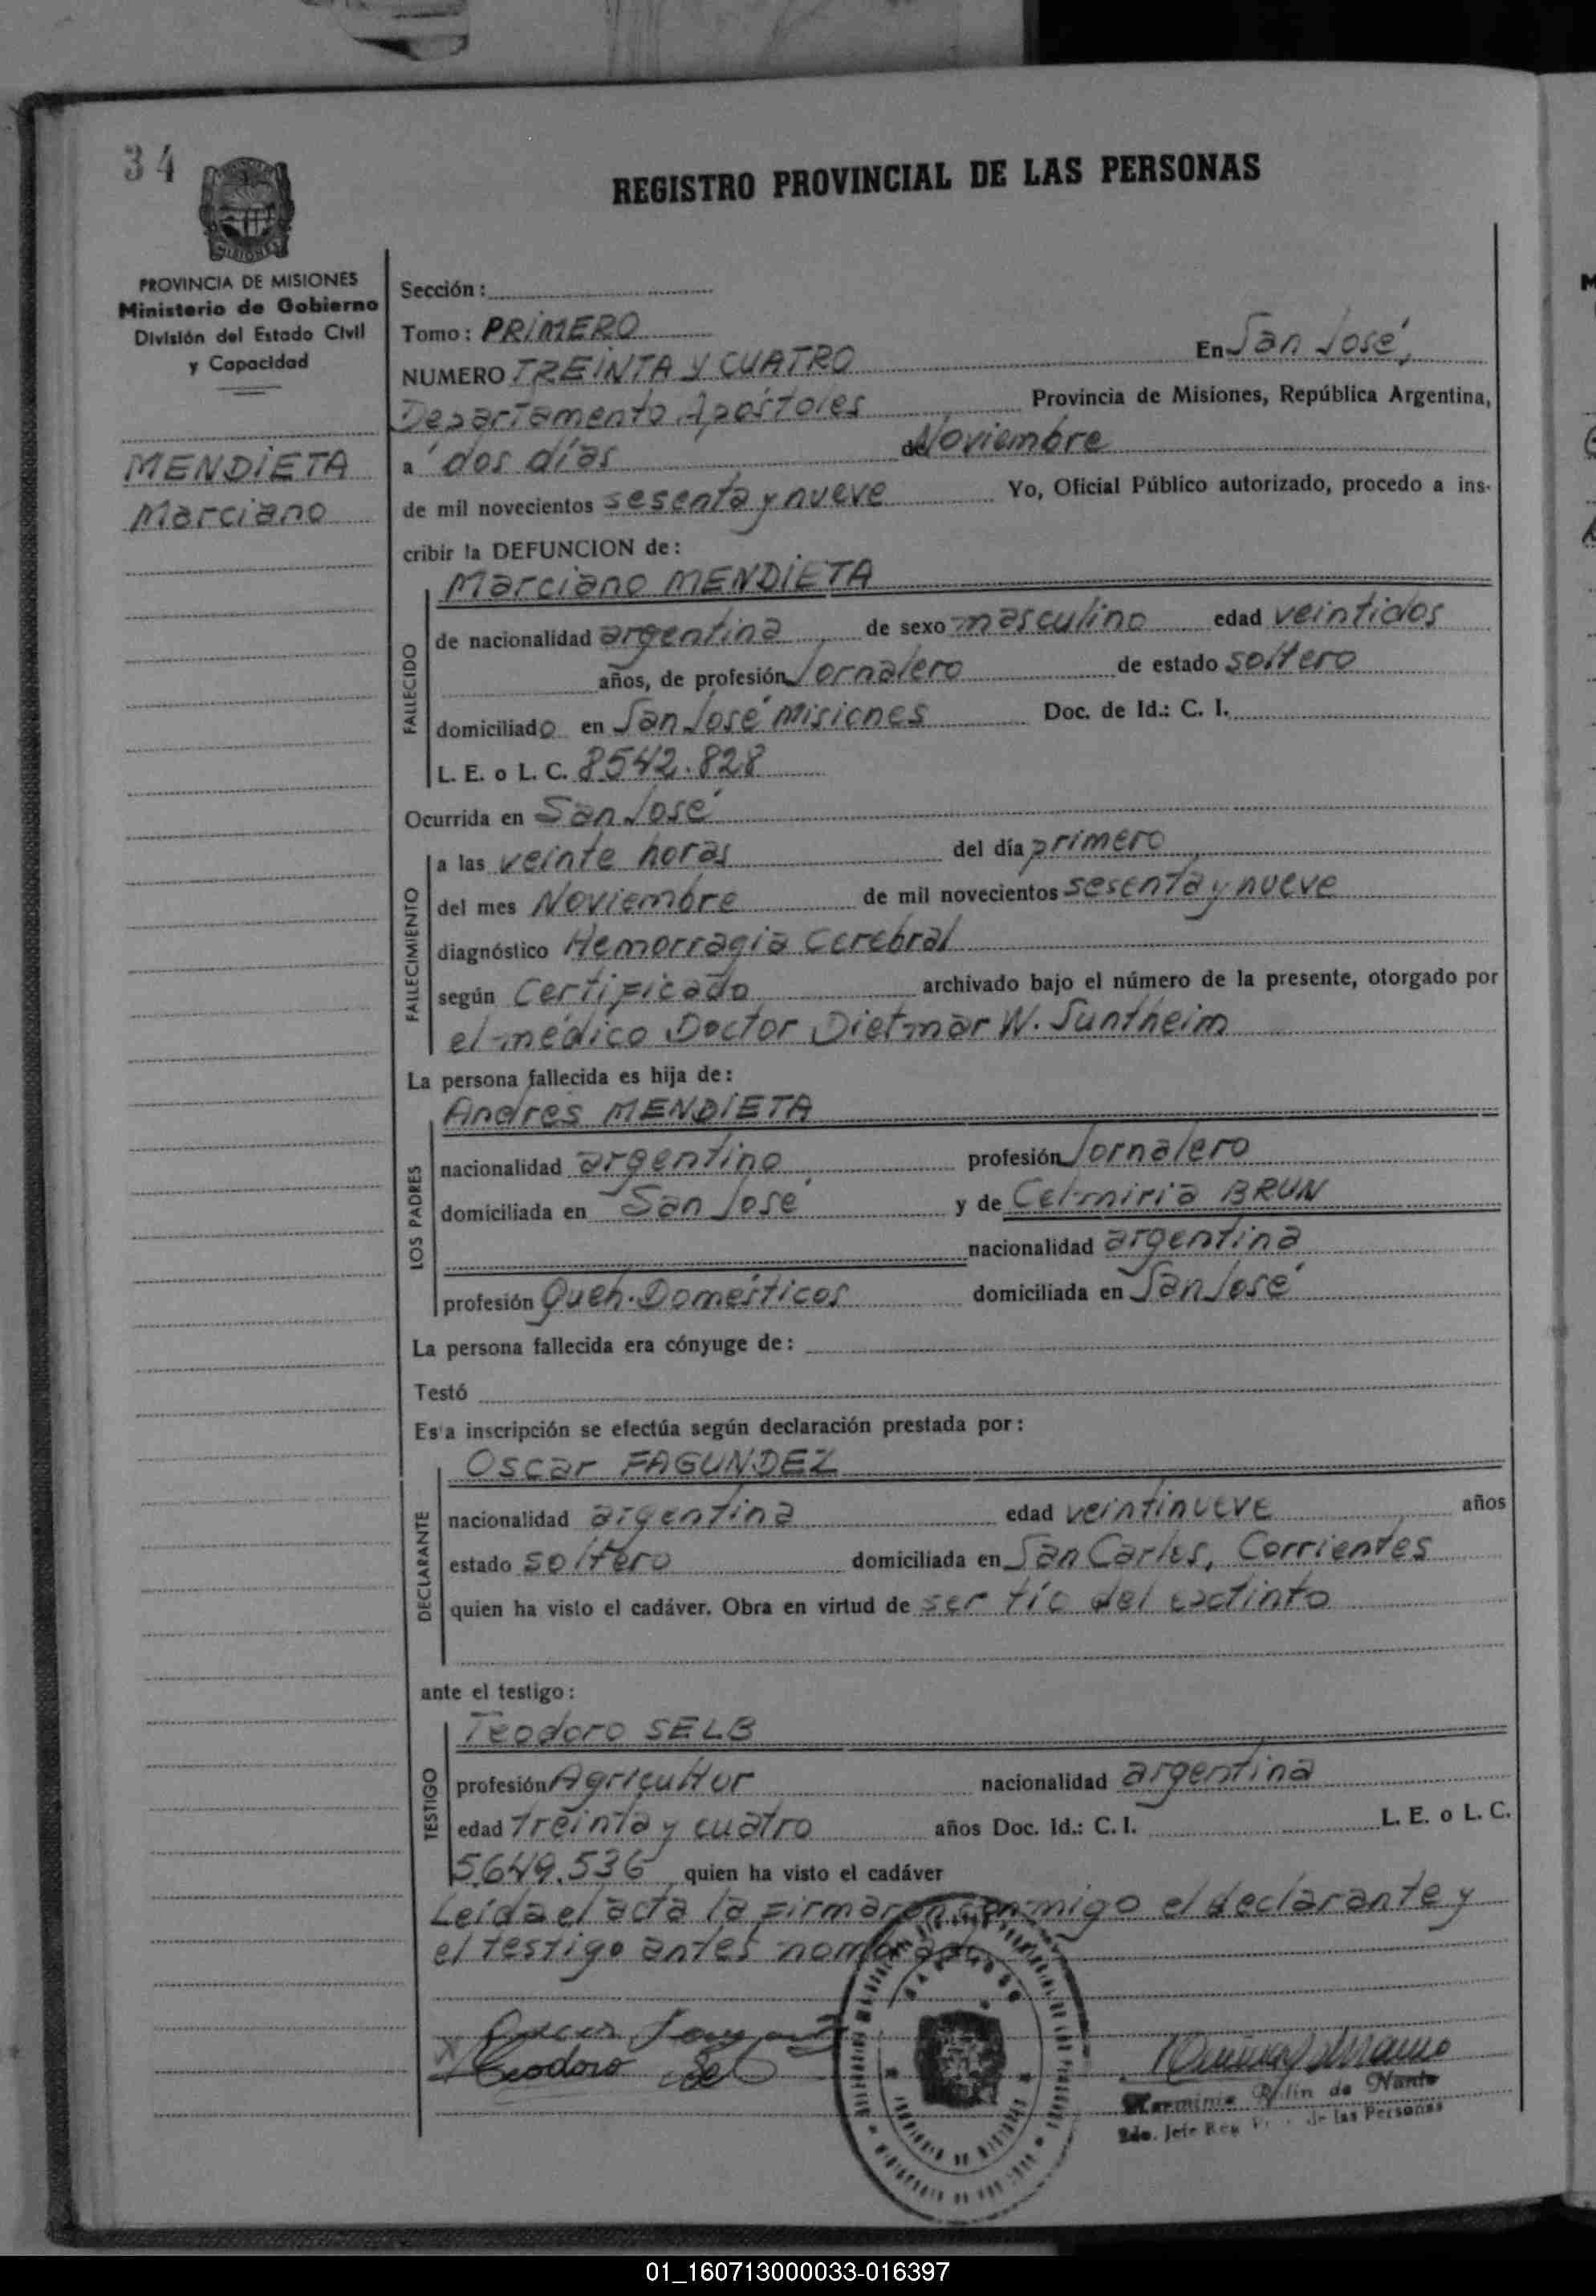 34
REGISTRO PROVINCIAL DE LAS PERSONAS
PROVINCIA DE MISIONES
Ministerio de Gobierno
División del Estado Civil
y Capacidad
MENDIETA
Marciano
Sección:
Tomo: PRIMERO
NUMERO TREINTA Y CUATRO En San José,
Departamento Apóstoles Provincia de Misiones, República Argentina,
a dos días de Noviembre
de mil novecientos sesenta y nueve Yo, Oficial Público autorizado, procedo a ins-
cribir la DEFUNCION de:
FALLECIDO
Marciano MENDIETA
de nacionalidad argentina de sexo masculino edad veintidos
años, de profesión Jornalero de estado soltero
domiciliado en San José Misiones Doc. de Id.: C. I.
L. E. o L. C. 8542.828
Ocurrida en San José
FALLECIMIENTO
a las veinte horas del día primero
del mes Noviembre de mil novecientos sesenta y nueve
diagnóstico Hemorragia Cerebral
según Certificado archivado bajo el número de la presente, otorgado por
el médico Doctor Dietmar W. Suntheim
La persona fallecida es hija de:
LOS PADRES
Andres MENDIETA
nacionalidad argentino profesión Jornalero
domiciliada en San José y de Celmiria BRUN
nacionalidad argentina
profesión Queh. Domésticos domiciliada en San José
La persona fallecida era cónyuge de:
Testó
Esta inscripción se efectúa según declaración prestada por:
DECLARANTE
Oscar FAGUNDEZ
nacionalidad argentina edad veintinueve años
estado soltero domiciliada en San Carlos, Corrientes
quien ha visto el cadáver. Obra en virtud de ser tío del extinto
ante el testigo:
TESTIGO
Teodoro SELB
profesión Agricultor nacionalidad argentina
edad treinta y cuatro años Doc. Id.: C. I. L. E. o L. C.
5.649.536 quien ha visto el cadáver
Leída el acta la firmaron conmigo el declarante y
el testigo antes nombrado
Teodoro Selb
de las Personas
01_160713000033-016397